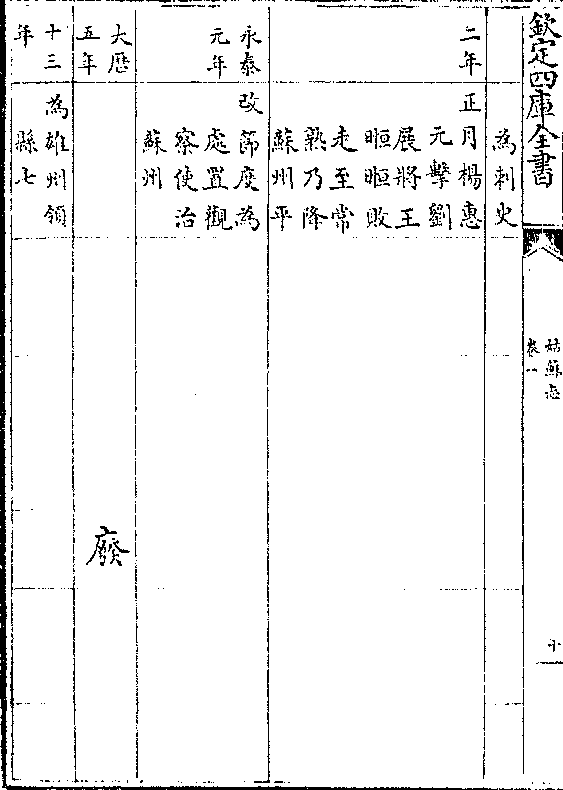 欽定四庫全書
姑蘇志
卷一
十
為刺史
二年
正月楊惠
元擊劉
展將王
暅暅敗
走至常
熟乃降
蘇州平
永泰
元年
改節度為
處置觀
察使治
蘇州
大厯
五年
廢
十三
年
為雄州領
縣七